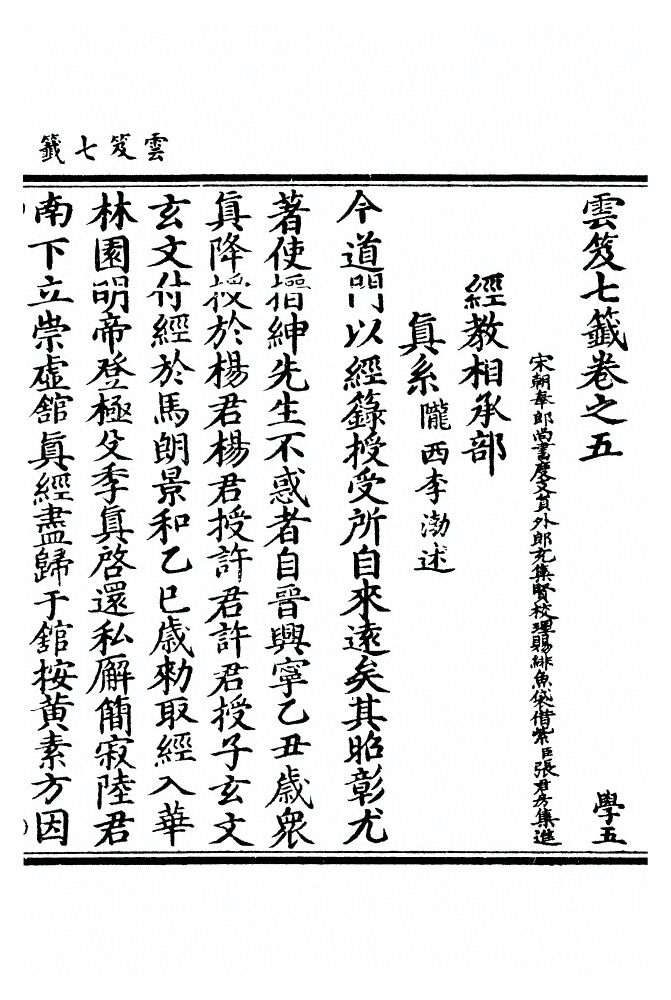 雲笈七籤
雲笈七籤卷之五
學五
宋朝奉郎尚書度支員外郎充集賢校理賜緋魚袋借紫臣張君房集進
經教相承部
真系
隴西李渤述
今道門以經籙授受所自來遠矣其昭彰尤
著使搢紳先生不惑者自晉興寧乙丑歲衆
真降授於楊君楊君授許君許君授子玄文
玄文付經於馬朗景和乙巳歲勑取經入華
林園明帝登極殳季真啓還私廨簡寂陸君
南下立崇虛舘真經盡歸于舘按黃素方因